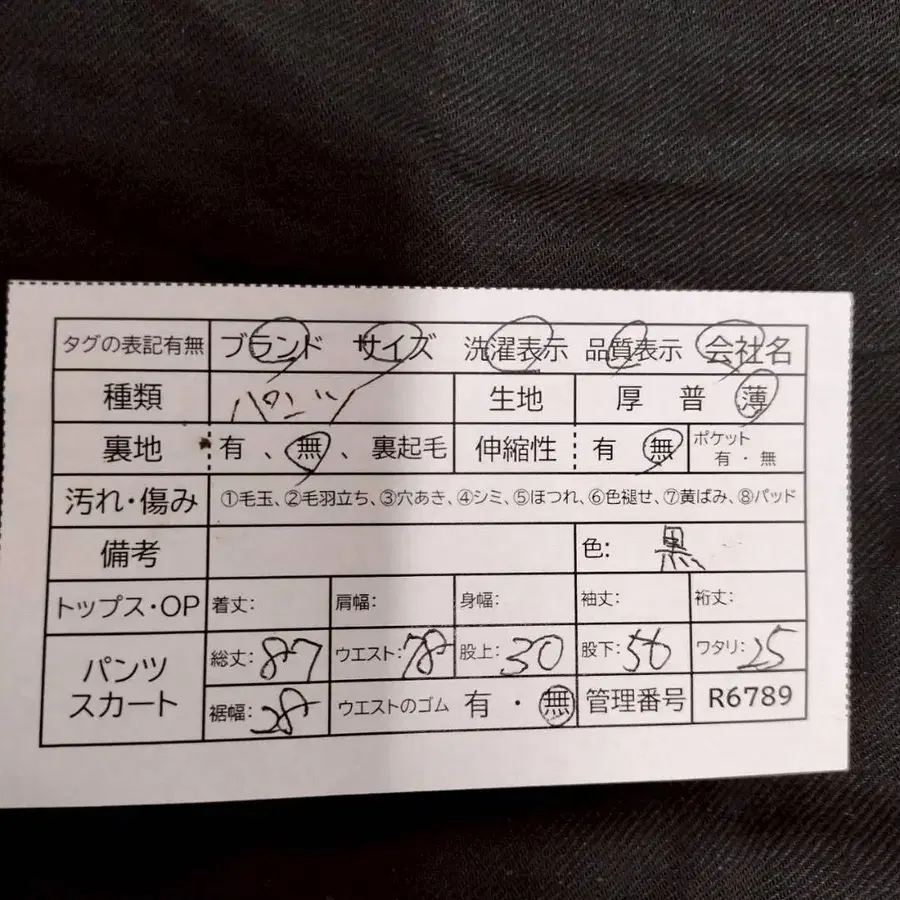 タグの表記有無 ブランド サイズ 洗濯表示 品質表示 会社名
種類 パンツ 生地 厚 普 薄
裏地 有 、 無 、 裏起毛 伸縮性 有 無 ポケット 有・無
汚れ・傷み ①毛玉、②毛羽立ち、③穴あき、④シミ、⑤ほつれ、⑥色褪せ、⑦黄ばみ、⑧パッド
備考 色: 黒
トップス・OP 着丈: 肩幅: 身幅: 袖丈: 裄丈:
パンツ スカート 総丈: 87 ウエスト: 78 股上: 30 股下: 56 ワタリ: 25
裾幅: 28 ウエストのゴム 有 ・ 無 管理番号 R6789